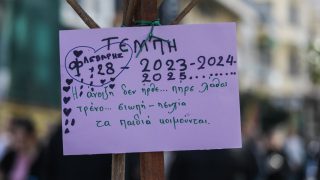 ΤΕΜΠΗ
ΦΛΕΒΑΡΗΣ
28 - 2023-2024
2025........
Η άνοιξη δεν ήρθε... πηρε λάθος
τρένο... σιωπή-
τα παιδιά κοιμούνται.